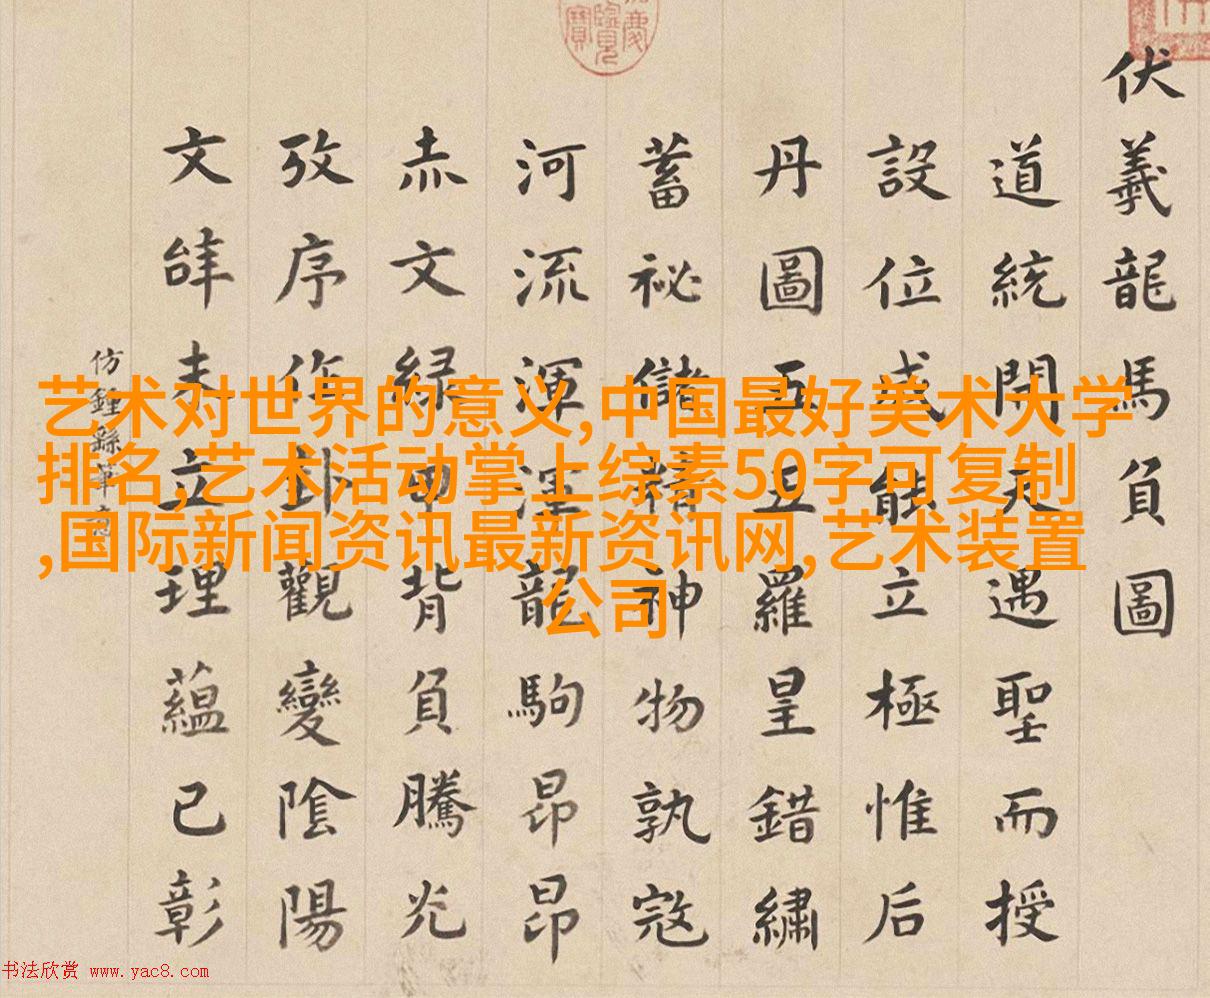 伏羲龍馬負圖
道統開元遇聖而授
設位成能立極惟后
丹圖五五羅皇錯繡
蓄祕儲精神物孰寇
河流渾渾龍駒昂昂
赤文緑甲背負騰光
攷序作卦觀變陰陽
文辝未立理蘊已彰
仿鍾繇筆意
艺术对世界的意义,中国最好美术大学
排名,艺术活动掌上综素50字可复制
,国际新闻资讯最新资讯网,艺术装置
公司
书法欣赏 www.yac8.com